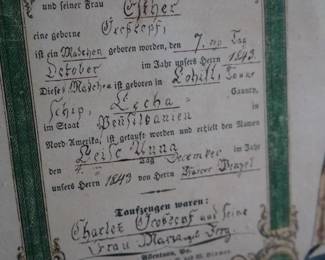 und seiner Frau Esther
eine geborne Großkopf,
ist ein Mädchen geboren worden, den 7. Tag
October im Jahr unsers Herrn 1843.
Dieses Mädchen ist geboren in Lohill, Taun
schip, Lecha Caunty,
im Staat Penßilvanien in
Nord-Amerika, ist getauft worden und erhielt den Namen
Anna
den 4. Tag December im Jahr
unsers Herrn 1843 von Herrn
Taufzeugen waren:
Charles Großkopf und seine
Frau Maria
Allentaun, Pa.